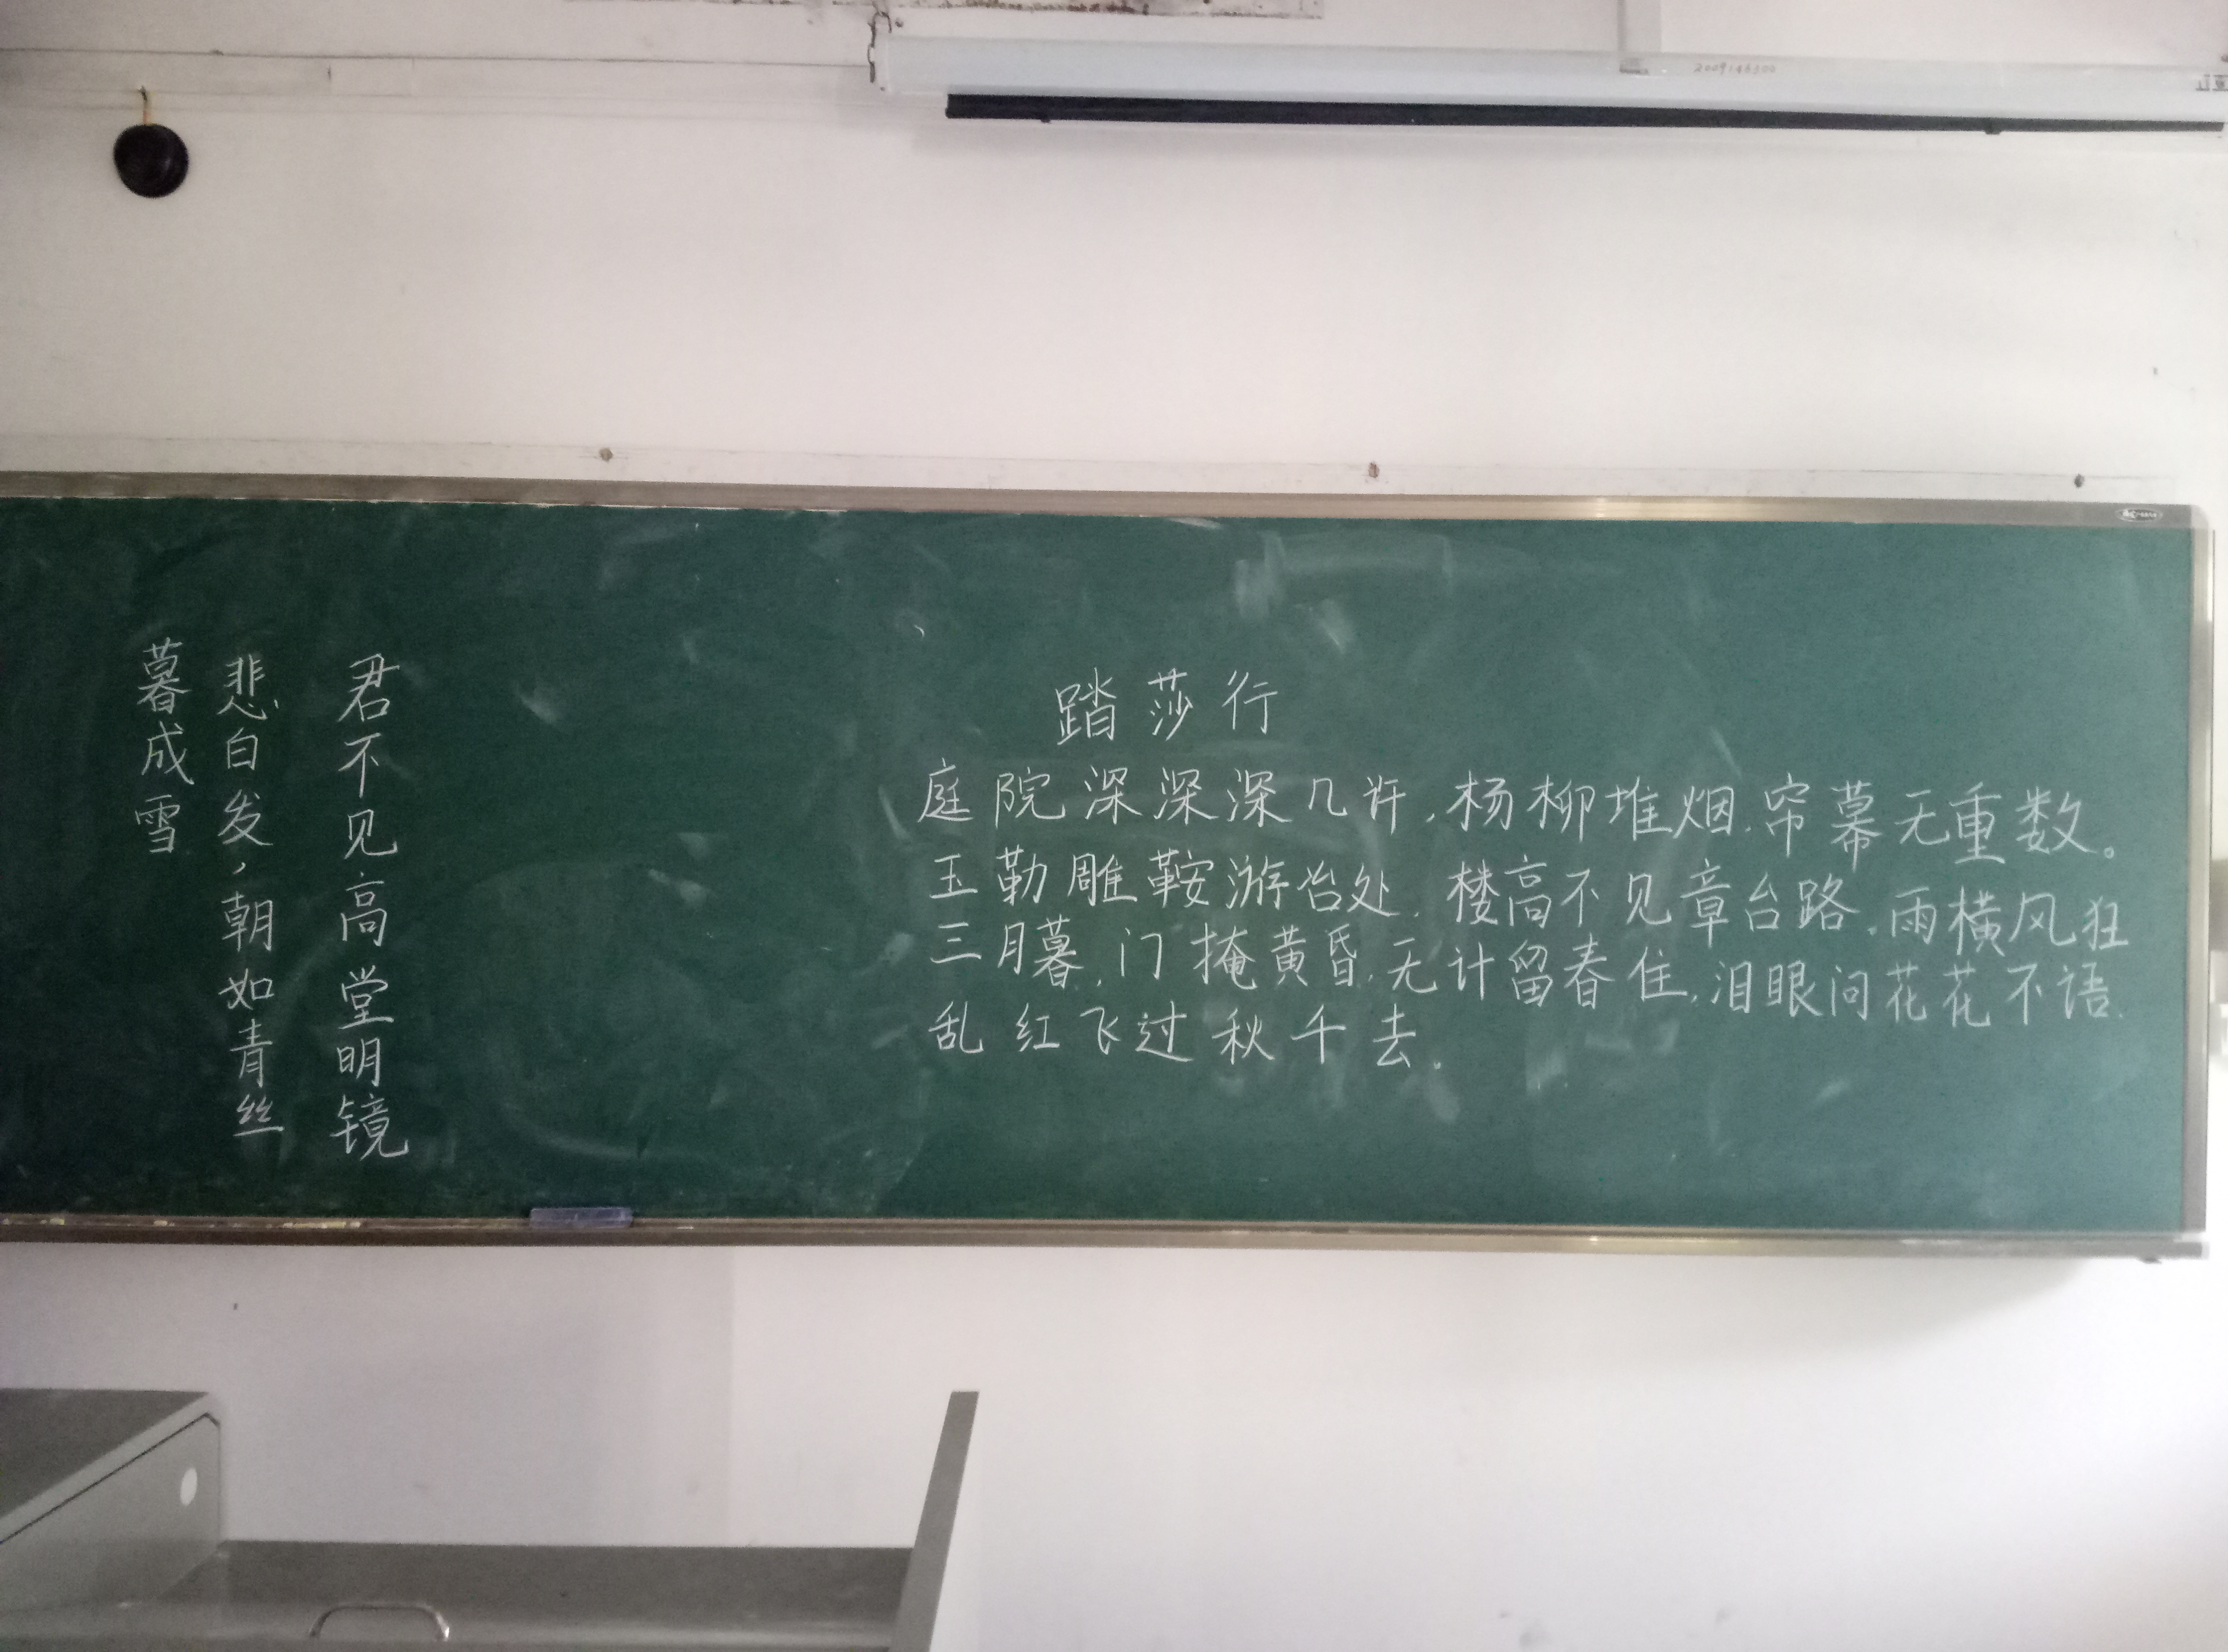 君不见高堂明镜
悲白发，朝如青丝
暮成雪
踏莎行
庭院深深深几许，杨柳堆烟，帘幕无重数。
玉勒雕鞍游冶处，楼高不见章台路，雨横风狂
三月暮，门掩黄昏，无计留春住，泪眼问花花不语，
乱红飞过秋千去。